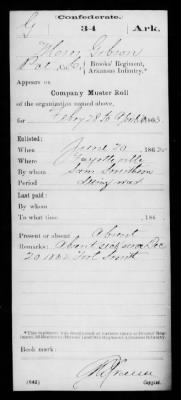 (Confederate.)
G 34 Ark.
Gibson
Brooks' Regiment,
Arkansas Infantry.*
Appears on
Company Muster Roll
of the organization named above,
for Feby 28 to 1863
Enlisted:
When June 20, 186
Where Fayetteville
By whom Sam
Period during war
Last paid:
By whom
To what time , 186
Present or absent Absent
Remarks: Absent sick since Dec
20 1862 Fort Smith
Book mark:
(642) Copyist.